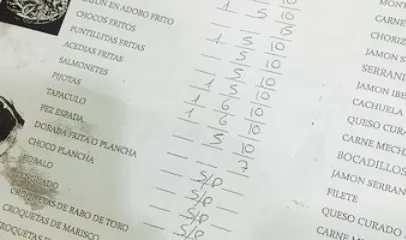 CAZÓN EN ADOBO FRITO
CHOCOS FRITOS 1 5 10
PUNTILLITAS FRITAS
ACEDIAS FRITAS
SALMONETES
PIJOTAS
TAPACULO
PEZ ESPADA
DORADA FRITA O PLANCHA
CHOCO PLANCHA
ROBALO
CROQUETAS DE RABO DE TORO
CROQUETAS DE MARISCO
10
5 10
5 10
1 5 10
1 6 10
6 10
5 10
7
S/P
S/P
S/P
S/P
CARNE
CHORIZ
JAMON S
SERRAN
JAMON IBE
CACHUELA
QUESO CURA
CARNE MECH
BOCADILLOS
JAMON SERRAN
FILETE
QUESO CURADO
CARNE M